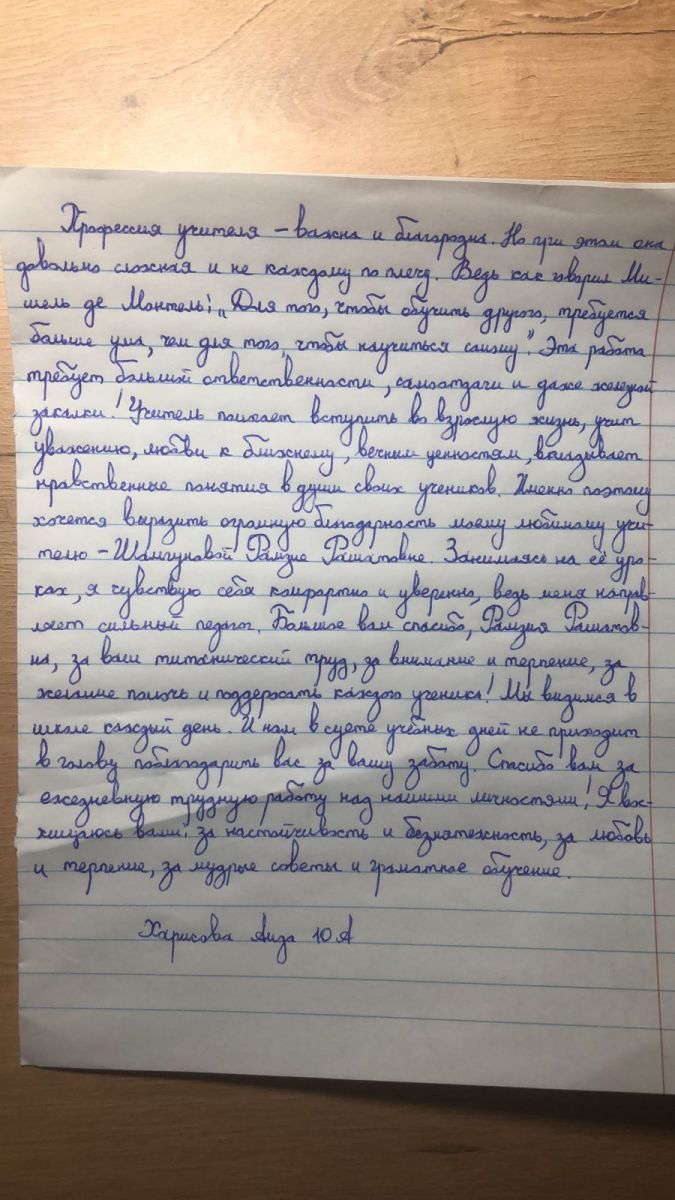 Профессия учителя – важна и благородна. Но при этом она
довольно сложная и не каждому по плечу. Ведь как говорил Ми-
шель де Монтель: „Для того, чтобы обучить другого, требуется
больше ума, чем для того, чтобы научиться самому". Эта работа
требует большой ответственности, самоотдачи и даже железной
закалки! Учитель помогает вступить во взрослую жизнь, учит
уважению, любви к ближнему, вечным ценностям, вкладывает
нравственные понятия в души своих учеников. Именно поэтому
хочется выразить огромную благодарность моему любимому учи-
телю – Шамгуновой Рамзие Рашатовне. Занимаясь на её уро-
ках, я чувствую себя комфортно и уверенно, ведь меня направ-
ляет сильный педагог. Большое вам спасибо, Рамзия Рашатов-
на, за ваш титанический труд, за внимание и терпение, за
желание помочь и поддержать каждого ученика! Мы видимся в
школе каждый день. И нам в суете учебных дней не приходит
в голову поблагодарить вас за вашу заботу. Спасибо вам за
ежедневную трудную работу над нашими личностями! Я вос-
хищаюсь вами: за настойчивость и безмятежность, за любовь
и терпение, за мудрые советы и граматное обучение.
Харисова Аиза 10 А